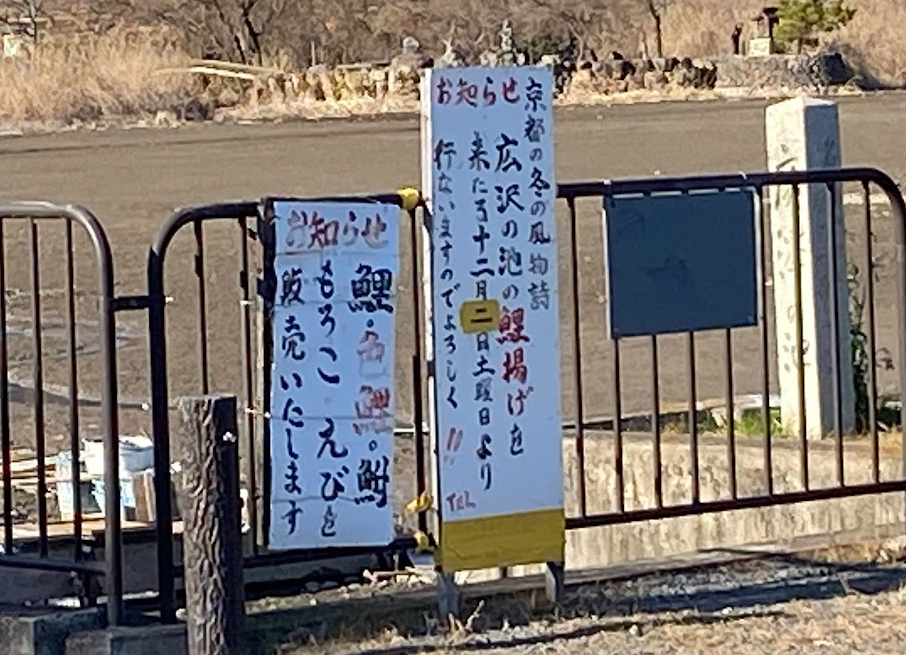 京都の冬の風物詩
お知らせ
広沢の池の鯉揚げを
来たる十二月二日土曜日より
行ないますのでよろしく!!
TEL
お知らせ
鯉・色鯉。鮒
もろこ・えびを
販売いたします